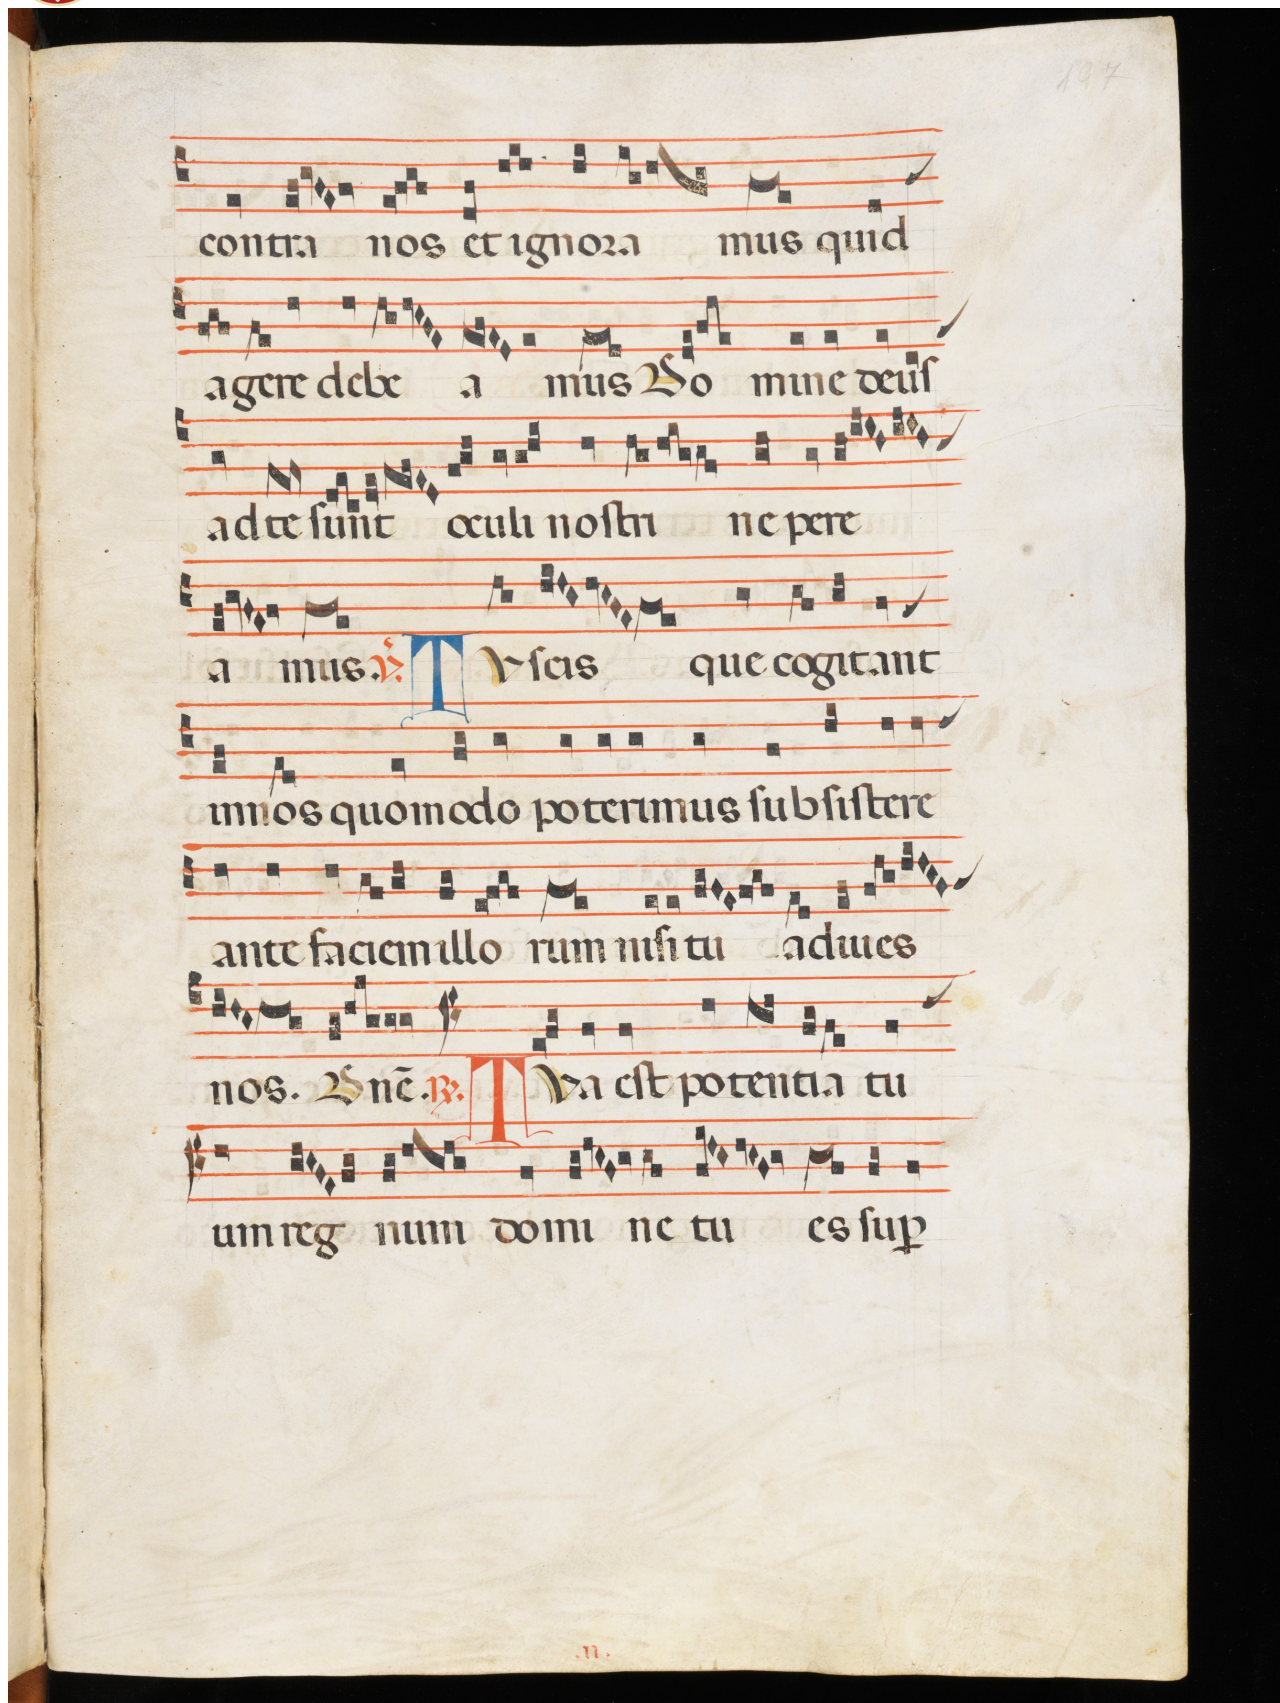 197
contra nos et ignora mus quid
agere debe a mus Do mine deus
ad te sunt oculi nostri ne pere
a mus. ℣. T V scis que cogitant
in nos quomodo poterimus subsistere
ante faciem illo rum nisi tu adiuves
nos. Dnē. ℟. T Va est potentia tu
um reg num domi ne tu es suꝑ
.n.